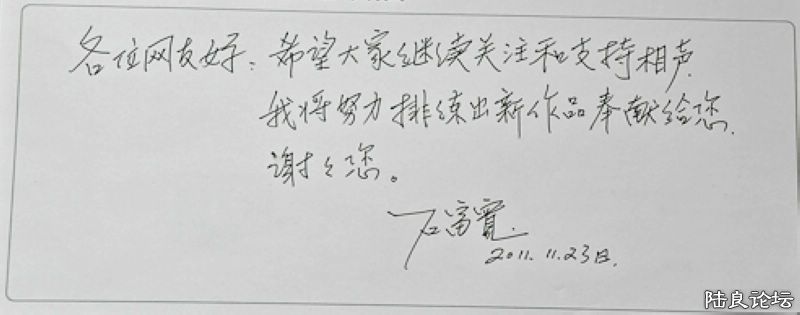 各位网友好：希望大家继续关注和支持相声
我将努力排练出新作品奉献给您.
谢谢您。
石富宽
2011.11.23日.
陆良论坛